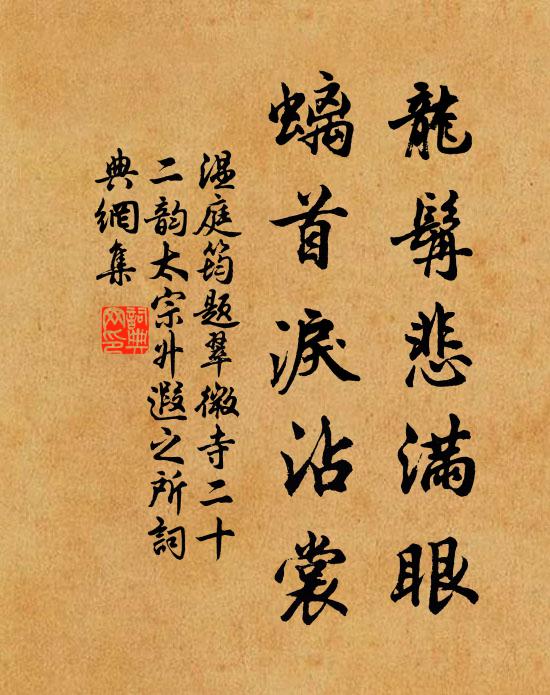 龍髯悲滿眼
螭首淚沾裳
溫庭筠題翠微寺二十
二韵太宗升遐之所詞
典網集
詞典
网印